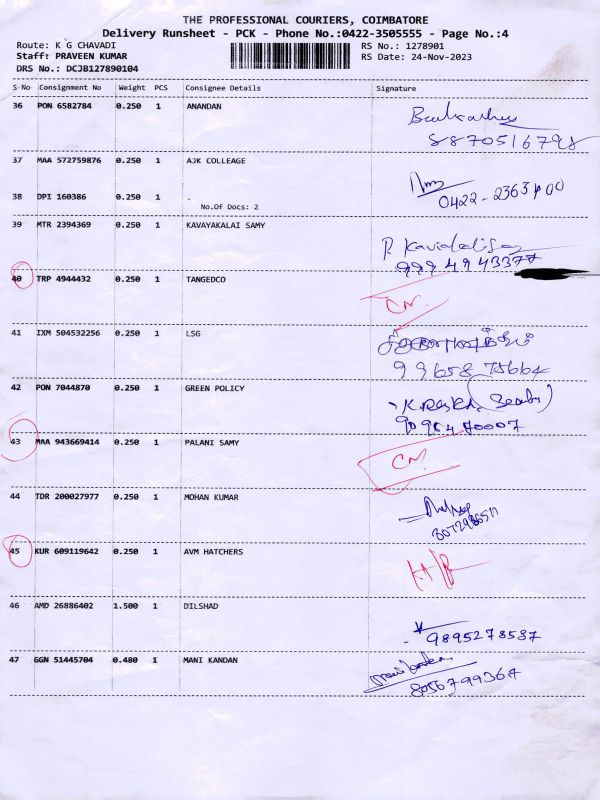 THE PROFESSIONAL COURIERS, COIMBATORE
Delivery Runsheet - PCK - Phone No.:0422-3505555 - Page No.:4
Route: K G CHAVADI RS No.: 1278901
Staff: PRAVEEN KUMAR RS Date: 24-Nov-2023
DRS No.: DCJB127890104
S No Consignment No Weight PCS Consignee Details Signature
36 PON 6582784 0.250 1 ANANDAN
8870516798
37 MAA 572759876 0.250 1 AJK COLLEAGE
38 DPI 160386 0.250 1 .
No.Of Docs: 2
0422-2363400
39 MTR 2394369 0.250 1 KAVAYAKALAI SAMY
9994943377
40 TRP 4944432 0.250 1 TANGEDCO
41 IXM 504532256 0.250 1 LSG
99658 75664
42 PON 7044870 0.250 1 GREEN POLICY
43 MAA 943669414 0.250 1 PALANI SAMY
44 TDR 200027977 0.250 1 MOHAN KUMAR
45 KUR 609119642 0.250 1 AVM HATCHERS
46 AMD 26886402 1.500 1 DILSHAD
9895278587
47 GGN 51445704 0.480 1 MANI KANDAN
8056799367